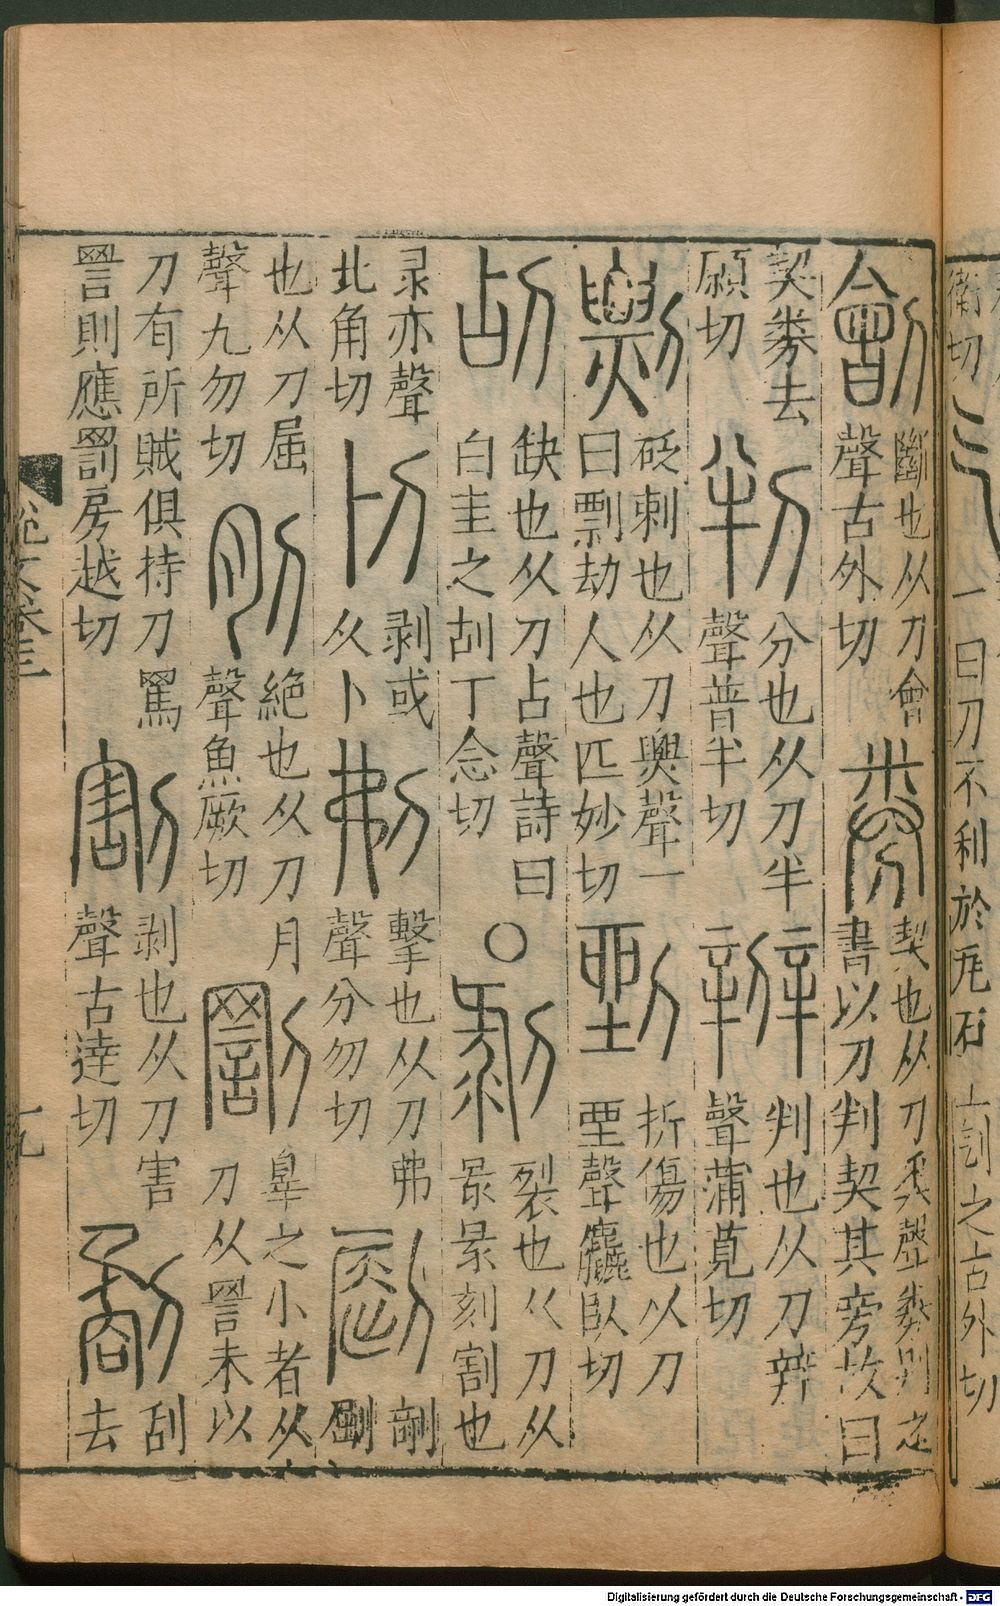 衛切
一曰刀不利於瓦石上刏之古外切
劊
斷也从刀會
聲古外切
券
契也从刀𢍏聲券別之
書以刀判契其旁故曰
契券去
願切
判
分也从刀半
聲普半切
辧
判也从刀辡
聲蒲莧切
剽
砭刺也从刀𤐫聲一
曰剽劫人也匹妙切
剄
折傷也从刀
聲麤臥切
刮
缺也从刀占聲詩曰
白圭之㓠丁念切
〇
剥
裂也从刀从
录录刻割也
录亦聲
北角切
㓟
剥或
从卜
刜
擊也从刀弗
聲分勿切
也从刀屈
聲九勿切
刖
絶也从刀月
聲魚厥切
罰
辠之小者从
刀从詈未以
刀有所賊俱持刀罵
詈則應罰房越切
割
剥也从刀害
聲古達切
刮
去
説文卷三
十九
Digitalisierung gefördert durch die Deutsche Forschungsgemeinschaft - DFG